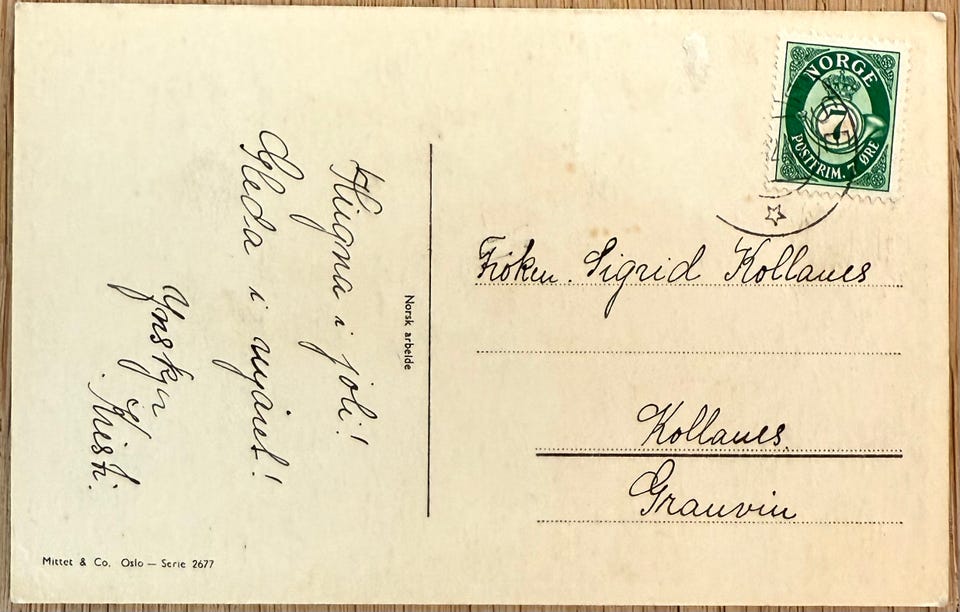 Hugna i joli!
Gleda i nyåret!
Ynskjer
Kristi.
Norsk arbeide
Mittet & Co. Oslo — Serie 2677
NORGE
7
POSTFRIM. 7 ØRE
Frøken. Sigrid Kollanes
Kollanes.
Granvin